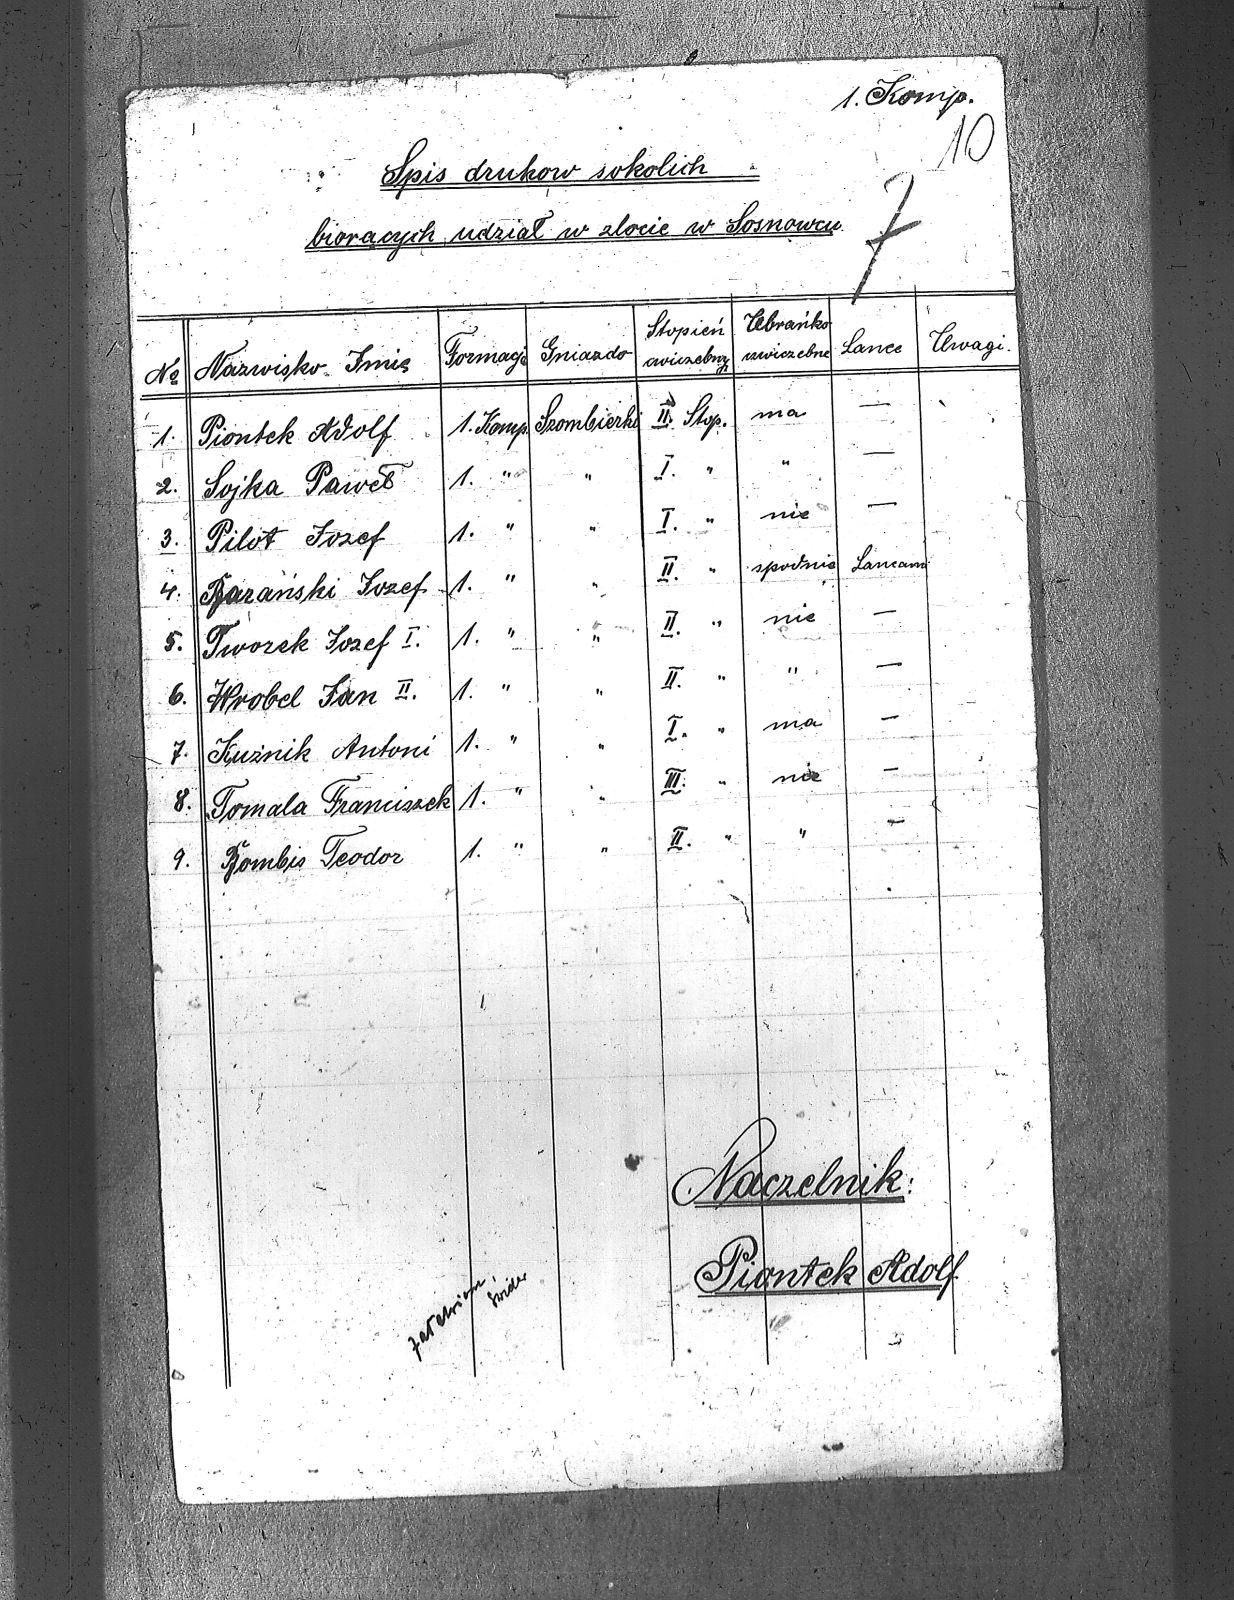 1. Komp.
10
Spis druhow sokolich
biorących udział w zlocie w Sosnowcu
7
№ Nazwisko Imię Formacja Gniazdo Stopień ćwiczebny Ubrańko ćwiczebne Lance Uwagi.
1. Piontek Adolf 1. Komp. Szombierki II. Stop. ma —
2. Sojka Paweł 1. " " I. " " —
3. Pilot Jozef 1. " " I. " nie —
4. Barański Jozef 1. " " II. " spodnie Lancam
5. Tworek Jozef I. 1. " " II. " nie —
6. Wrobel Jan II. 1. " " II. " " —
7. Kuźnik Antoni 1. " " I. " ma —
8. Tomala Franciszek 1. " " III. " nie —
9. Bombis Teodor 1. " " II. " " —
Naczelnik:
Piontek Adolf.